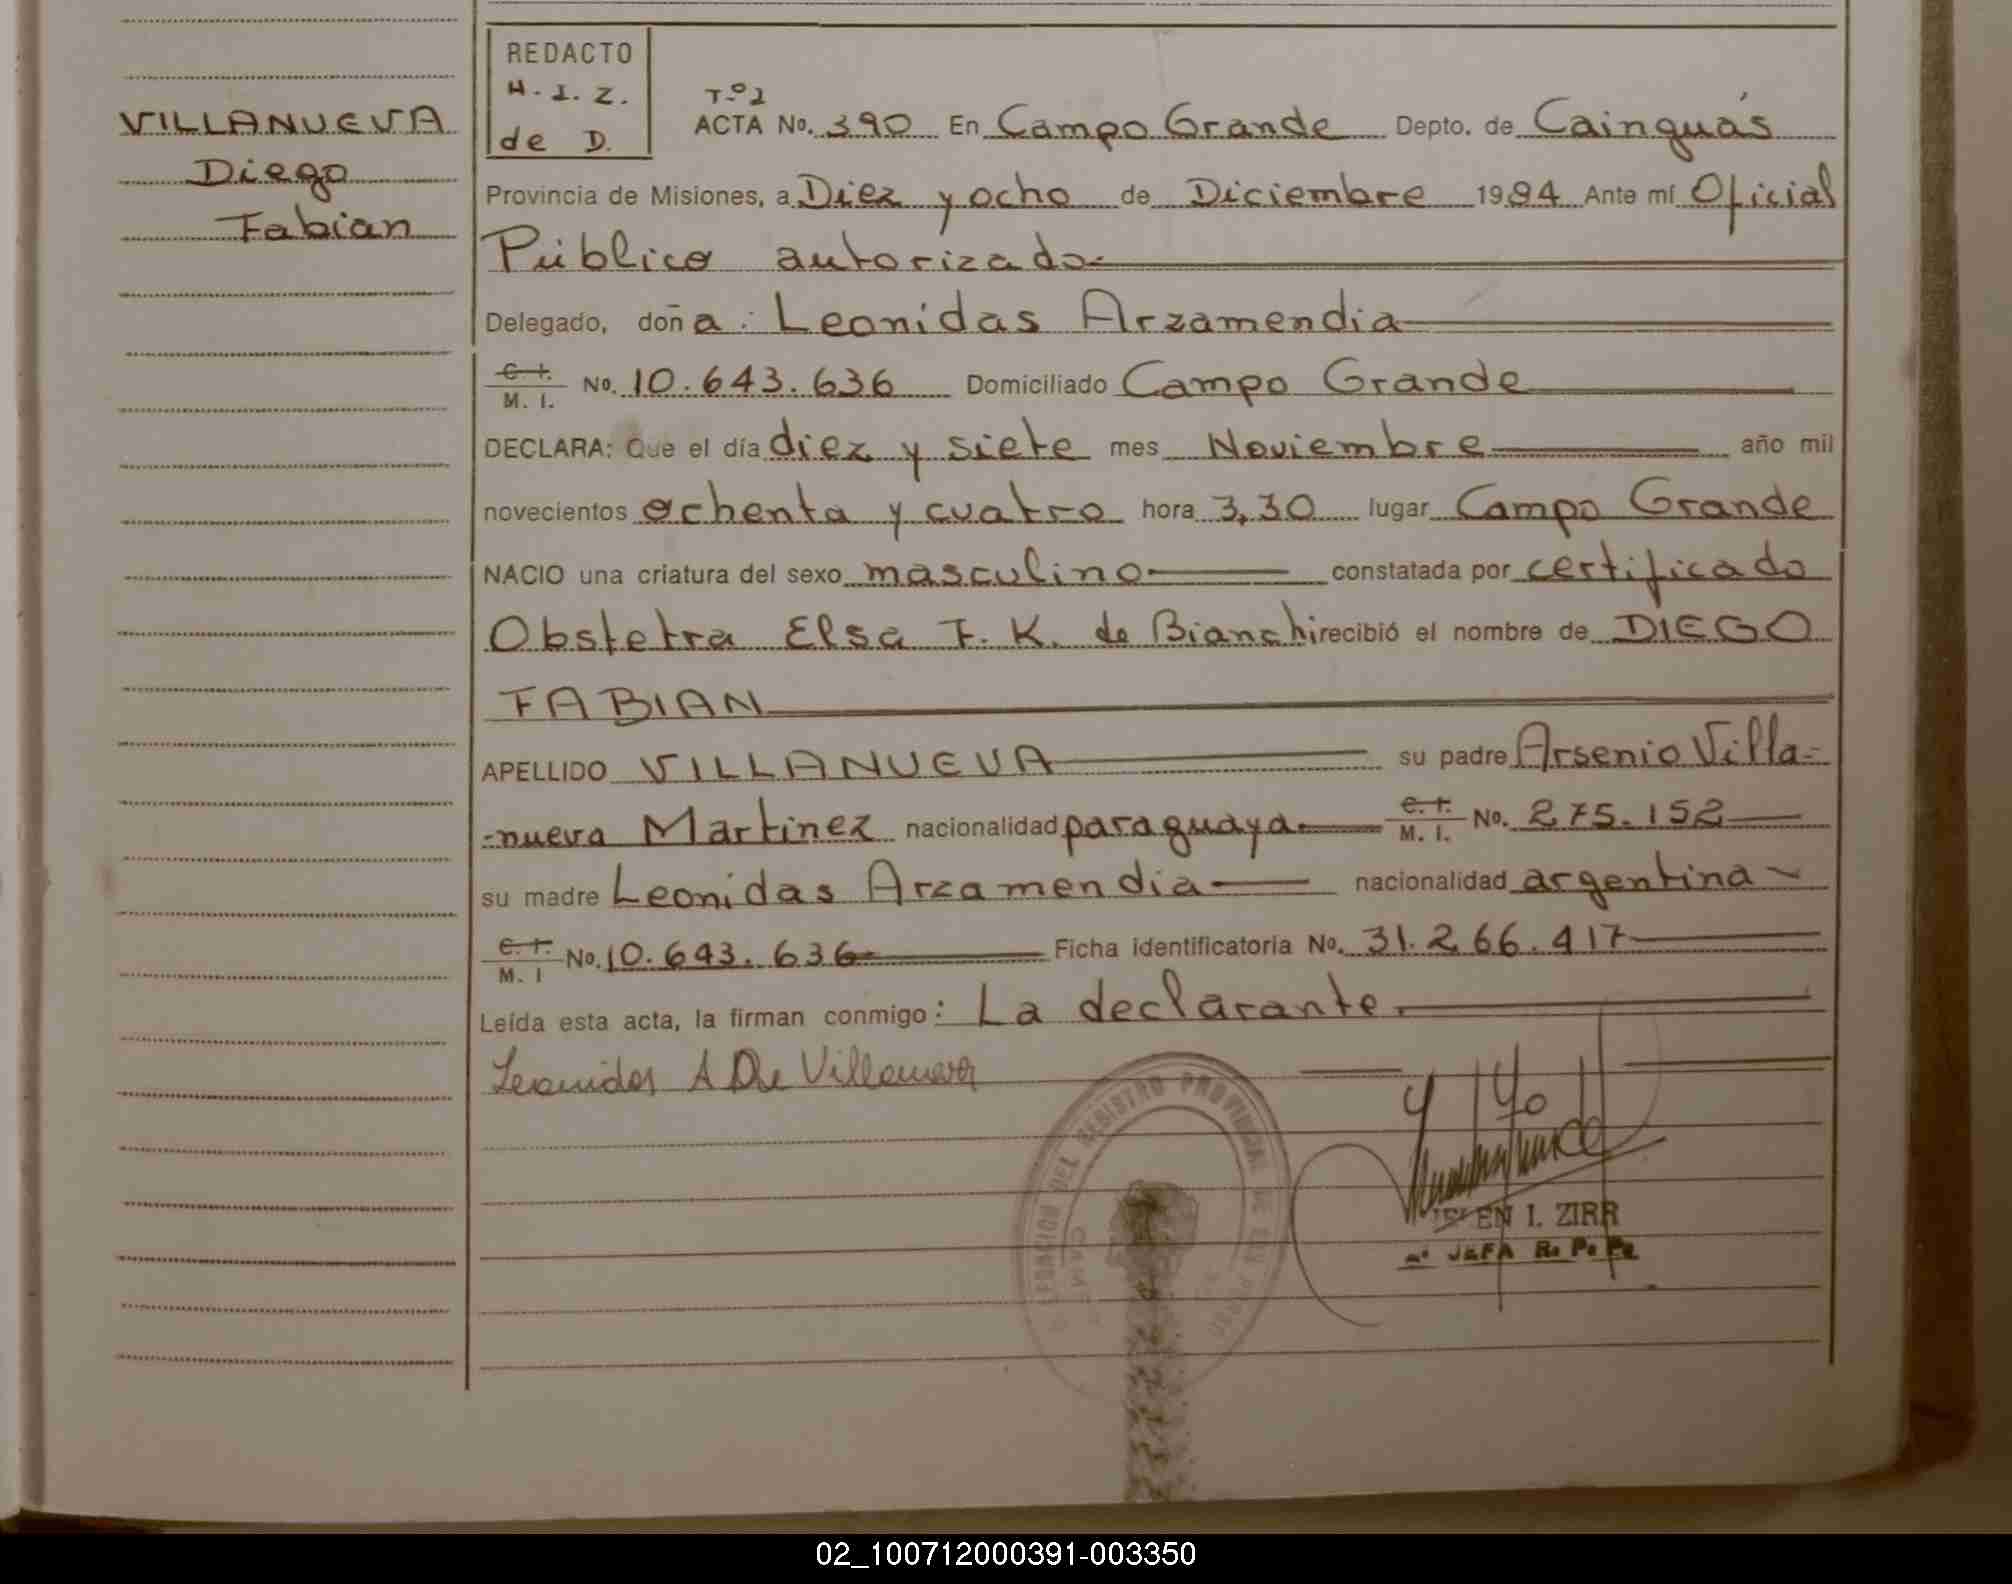 REDACTO
H. I. Z.
de D.
VILLANUEVA
Diego
Fabian
Tº 2
ACTA No. 390 En Campo Grande Depto. de Cainguás
Provincia de Misiones, a Diez y ocho de Diciembre 1984 Ante mí Oficial
Público autorizado
Delegado, doña: Leonidas Arzamendia
C. I. M. I. No. 10.643.636 Domiciliado Campo Grande
DECLARA: Que el día diez y siete mes Noviembre año mil
novecientos ochenta y cuatro hora 3,30 lugar Campo Grande
NACIO una criatura del sexo masculino constatada por certificado
Obstetra Elsa F. K. de Bianchi recibió el nombre de DIEGO
FABIAN
APELLIDO VILLANUEVA su padre Arsenio Villa-
-nueva Martinez nacionalidad paraguaya C. I. M. I. No. 275.152
su madre Leonidas Arzamendia nacionalidad argentina
C. I. M. I No. 10.643.636 Ficha identificatoria No. 31.266.417
Leída esta acta, la firman conmigo: La declarante.
Leonidas A De Villanueva
DEL REGISTRO PROVINCIAL DE LAS PERSO
EN I. ZIRR
JEFA R. P. P.
02_100712000391-003350